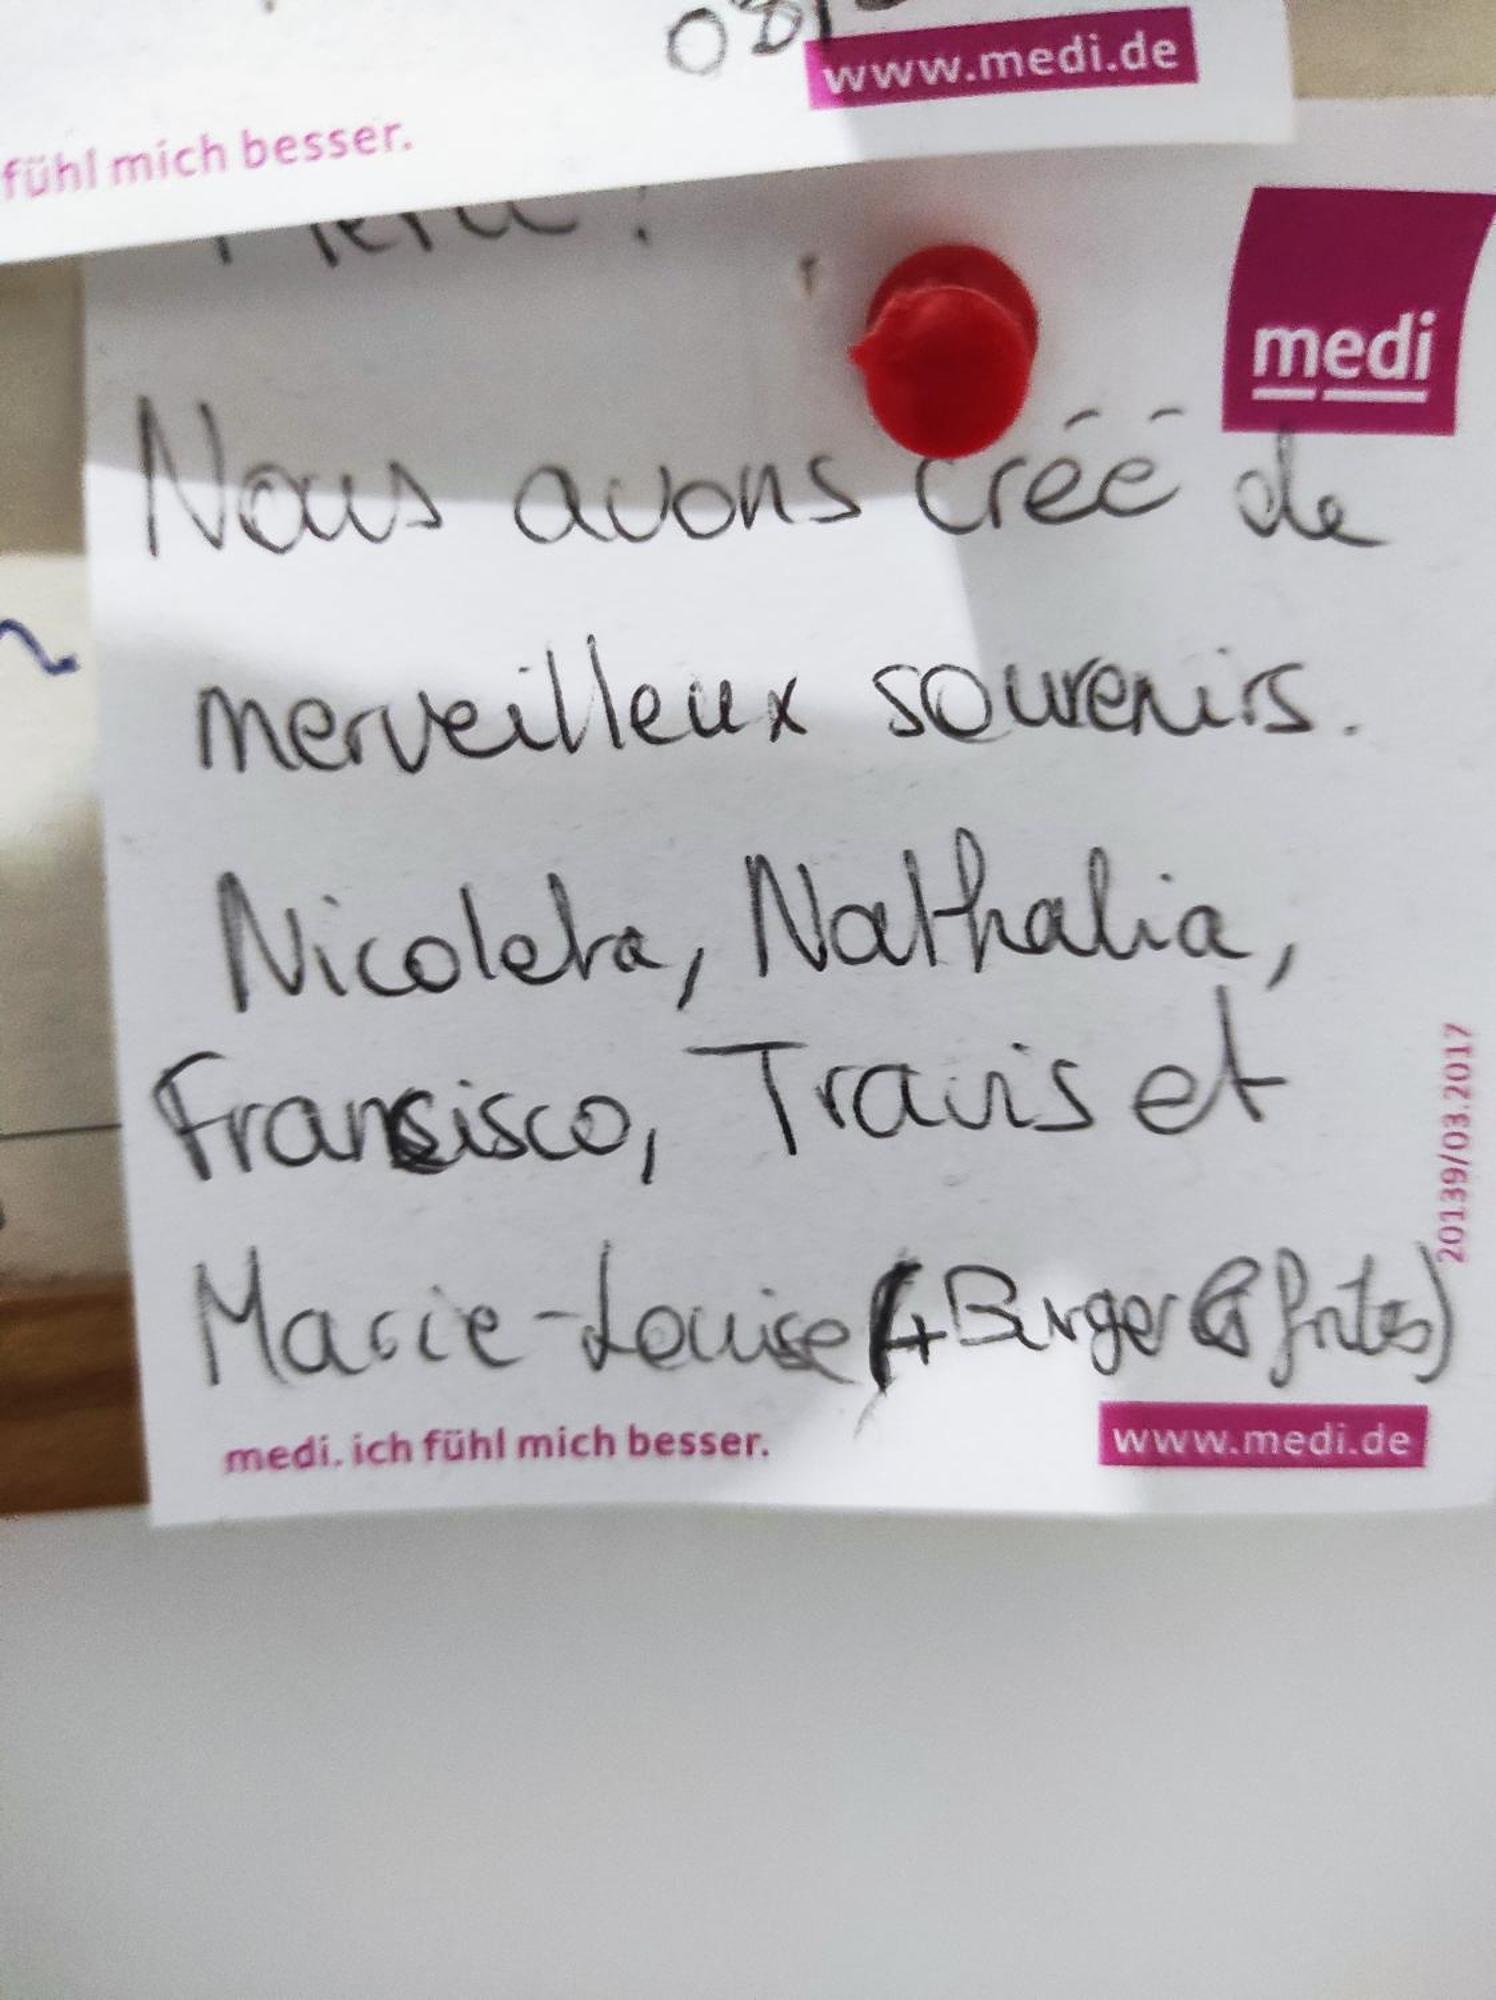 08/
www.medi.de
fühl mich besser.
medi
Nous avons créé de
merveilleux souvenirs.
Nicoleta, Nathalia,
Francisco, Travis et
Marie-Louise (+ Burger & frites)
20139/03.2017
medi. ich fühl mich besser.
www.medi.de